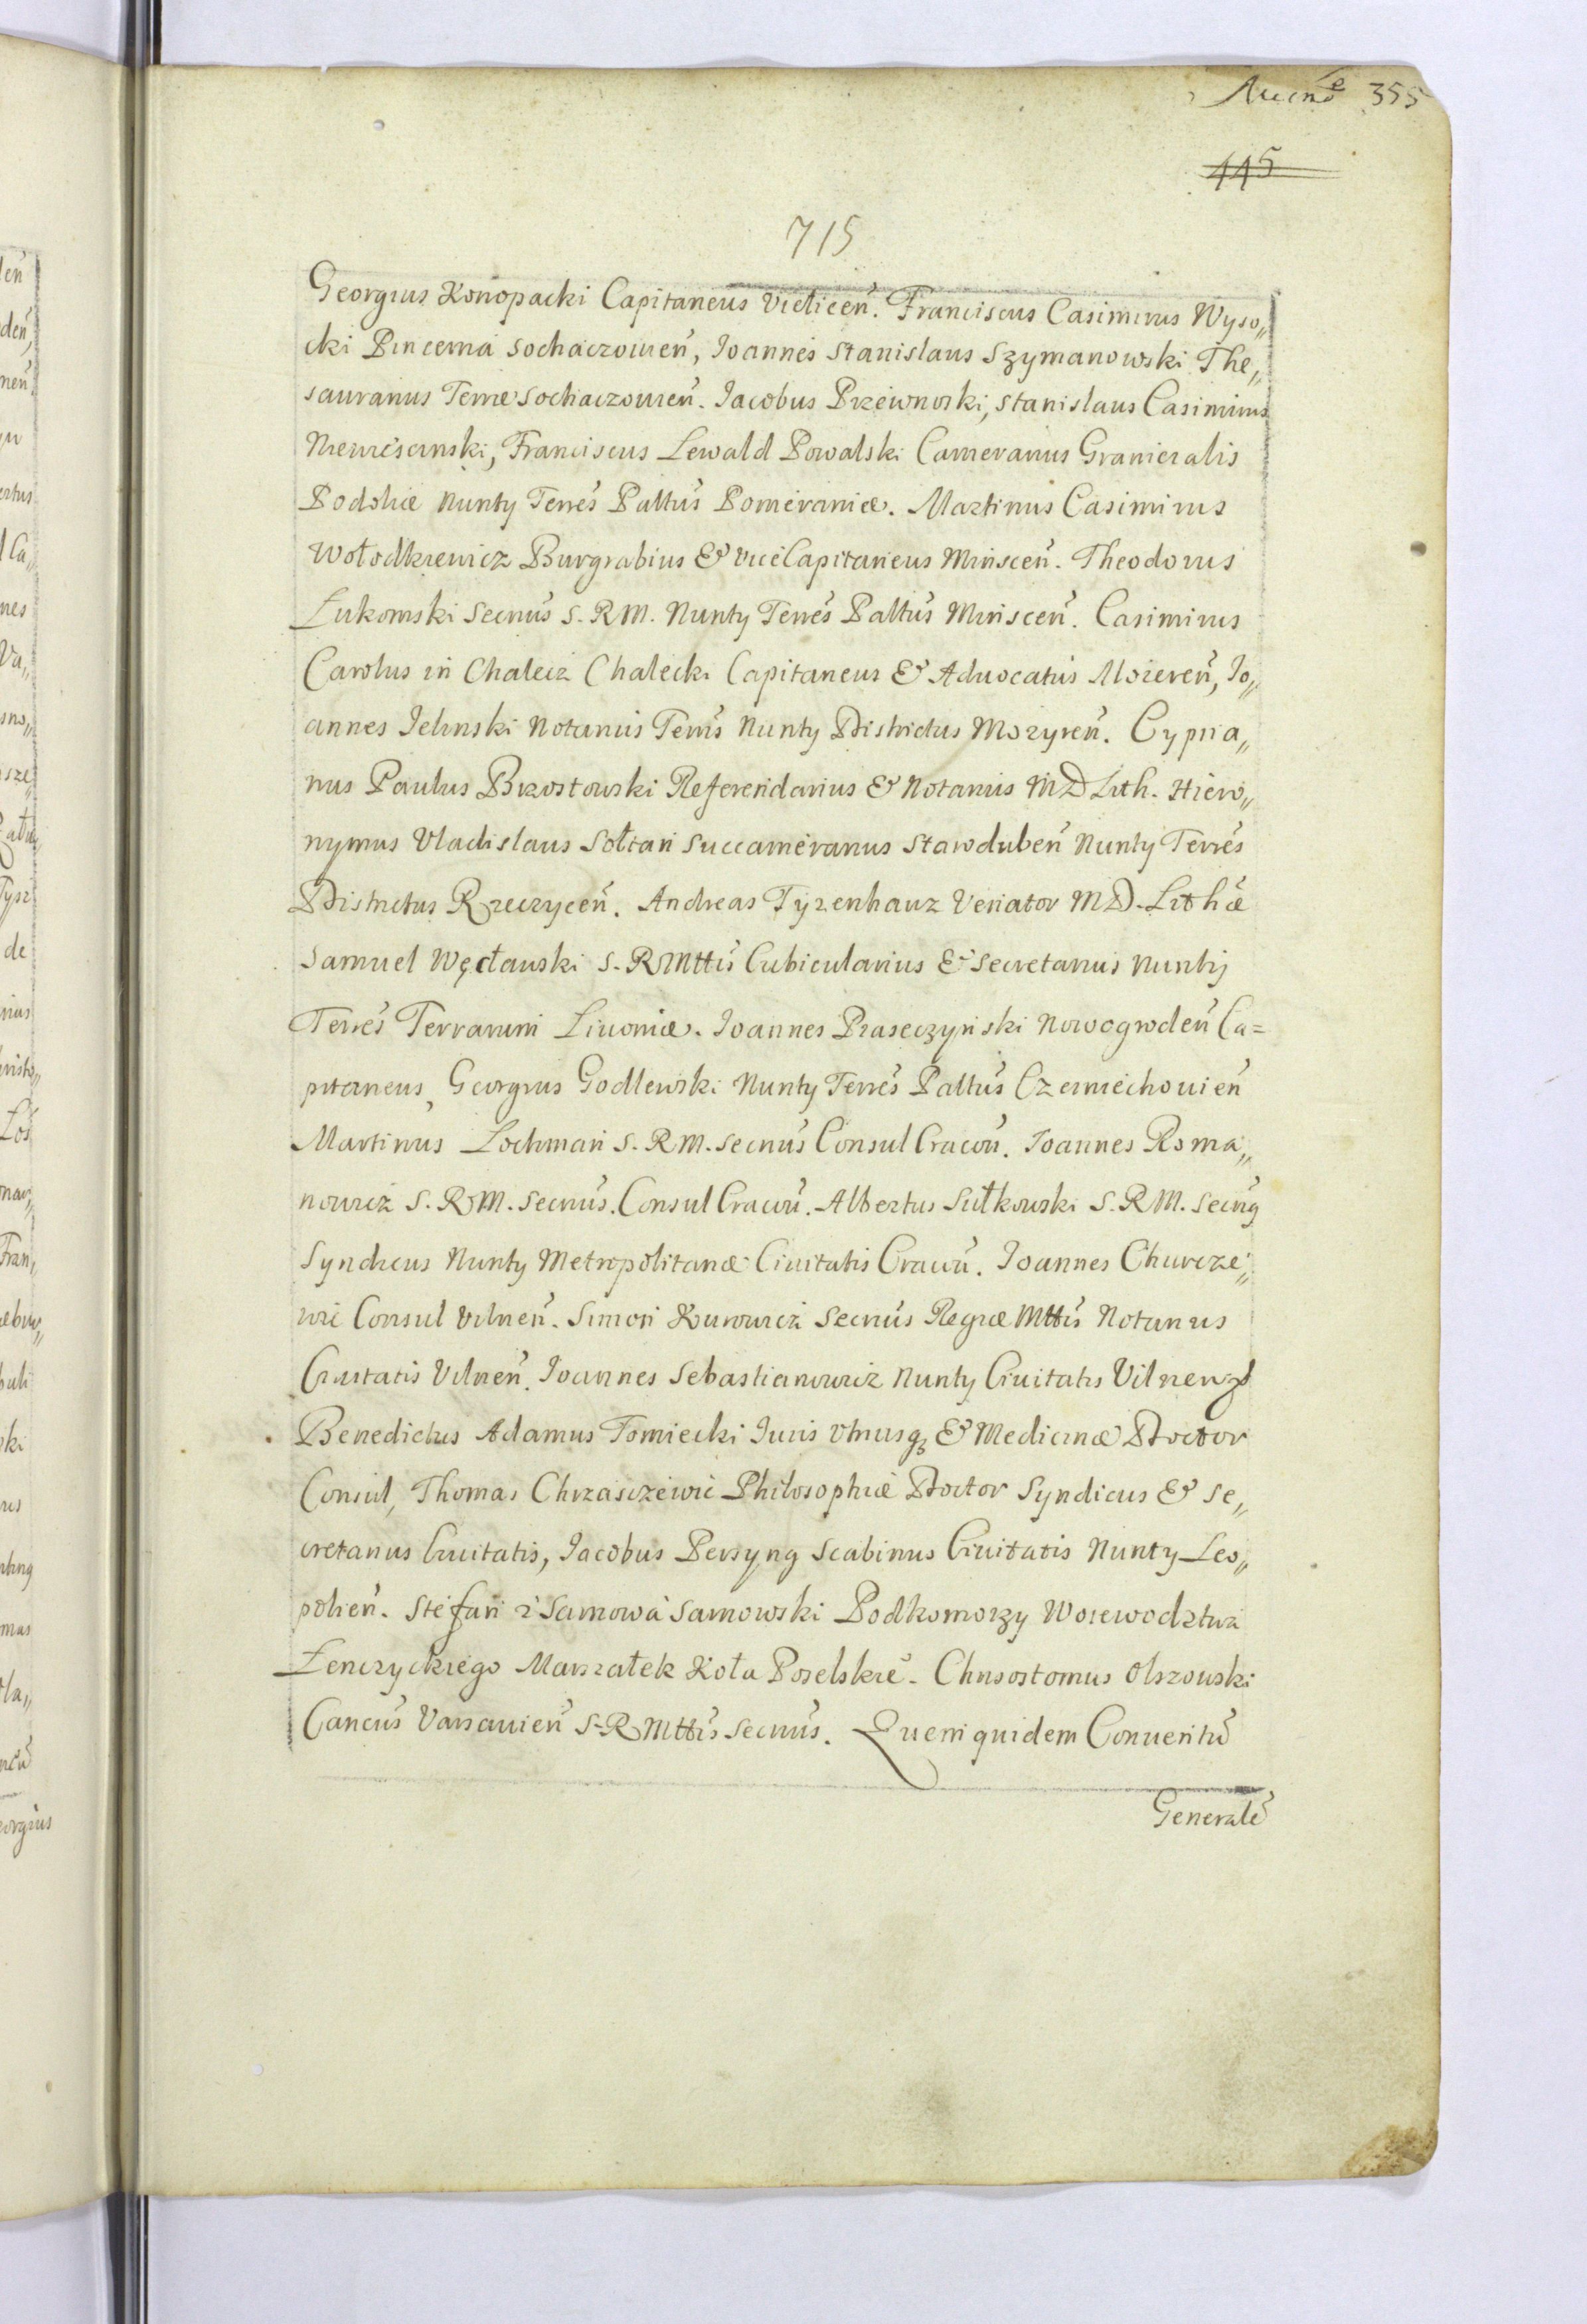 355
445
715
Georgius Konopacki Capitaneus Vielicen̄. Franciscus Casimirus Wyso„
cki Pincerna Sochaczouien̄, Ioannes Stanislaus Szymanowski The„
saurarius Terræ Sochaczouien̄. Iacobus Przewnoski, Stanislaus Casimirus
Franciscus Lewald Powalski Camerarius Granicialis
Podoliæ Nuntÿ Terrēs Pałtūs Pomeraniæ. Martinus Casimirus
Wołodkiewicz Burgrabius & ViceCapitaneus Minscen̄. Theodorus
Łukomski Secriūs S. R M. Nuntÿ Terrēs Pałtūs Minscen̄. Casimirus
Carolus in Chalecz Chalecki Capitaneus & Aduocatus Mozeren̄, Io„
annes Ielinski Notarius Terrīs Nuntÿ Districtus Mozyren̄. Cypria„
nus Paulus Brzostowski Referendarius & Notarius M D Lith. Hiero„
nymus Vladislaus Sołtan Succamerarius Staroduben̄ Nuntÿ Terrēs
Districtus Rzeczycen̄. Andreas Tyzenhauz Venator M D. Lithæ
Samuel Węcławski S. R Mttis Cubicularius & Secretarius Nuntij
Terrēs Terrarum Liuoniæ. Ioannes Praseczyński Nowogroden̄ Ca=
pitaneus, Georgius Godlewski Nuntÿ Terrēs Pałtūs Czerniechouien̄
Martinus Lochman S. R M. Secriūs Consul Cracou̅. Ioannes Roma„
nowicz S. R M. Secriūs. Consul Cracou̅. Albertus Sułkowski S. R M. Secri9
Syndicus Nuntÿ Metropolitanæ Ciuitatis Cracou̅. Ioannes Churcze„
wic Consul Vilnen̄. Simon Kurowicz Secriūs Regiæ Mttis Notarius
Ciuitatis Vilnen̄. Ioannes Sebastianowicz Nuntÿ Ciuitatis Vilnens
Benedictus Adamus Tomiecki Iuris Vtriusq₃ & Medicinæ Doctor
Consul, Thomas Chrzasczewic Philosophiæ Doctor Syndicus & Se„
cretarius Ciuitatis, Iacobus Persyng Scabinus Ciuitatis Nuntÿ Leo„
polien̄. Stefan z Sarnowa Sarnowski Podkomorzy Woiewodztwa
Łenczyckiego Marszałek Koła Poselskie. Chrisostomus Olszowski
Cancūs Varsauien̄ S. R Mttis Secriūs. Quem quidem Conuentū
Generalē